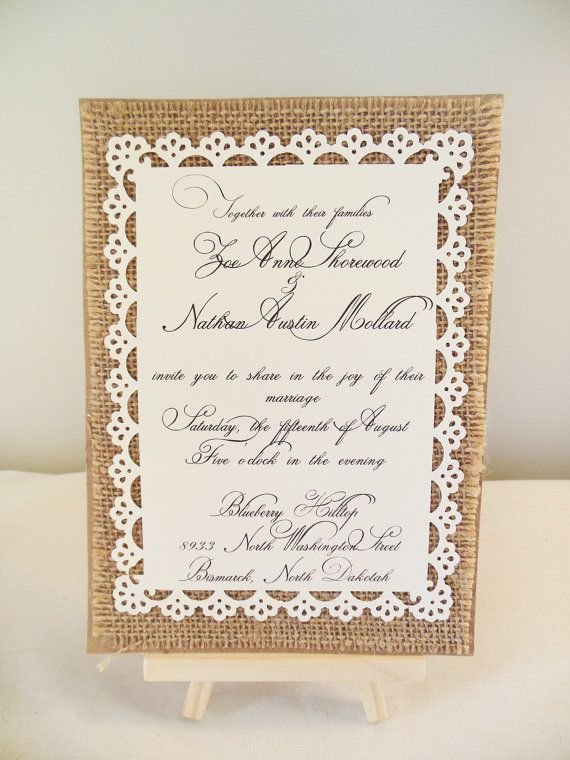 Together with their families
Zoe Anne Shorewood
&
Nathan Austin Mollard
invite you to share in the joy of their
marriage
Saturday, the fifteenth of August
Five o'clock in the evening
Blueberry Hilltop
8933 North Washington Street
Bismarck, North Dakotah